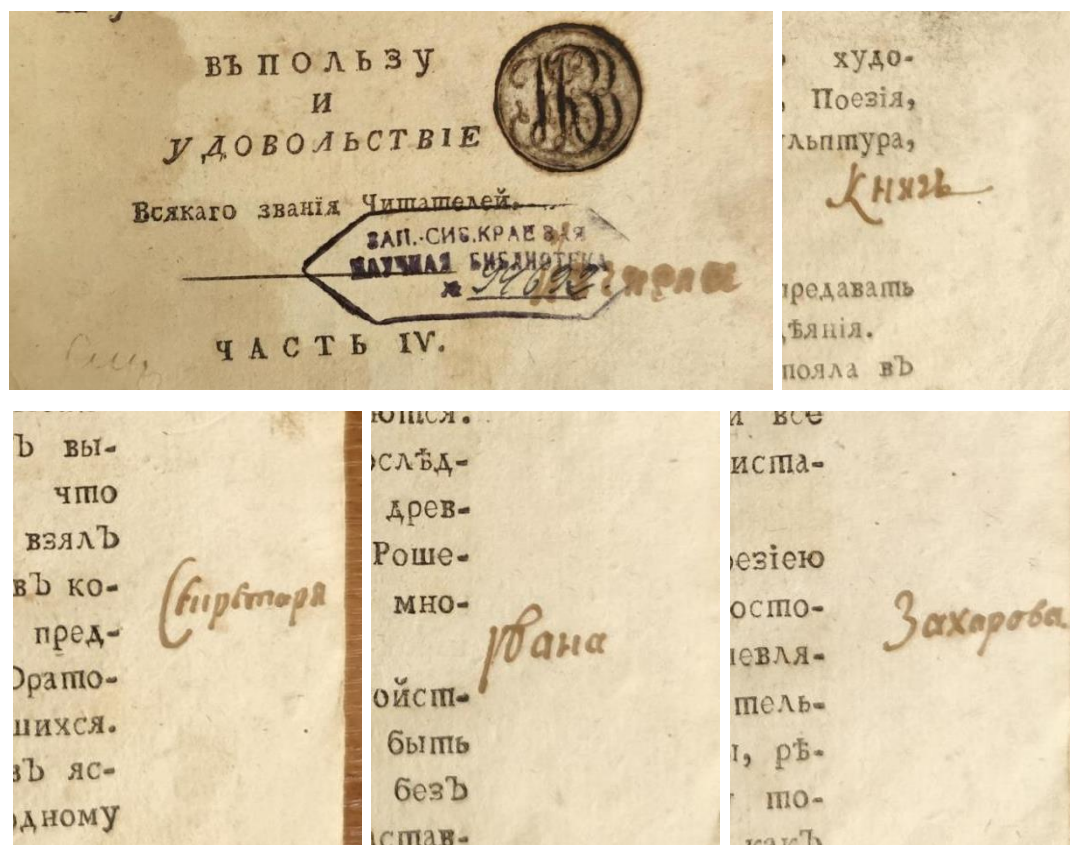 ВЪ ПОЛЬЗУ
И
УДОВОЛЬСТВІЕ
Всякаго званія Читателей.
ЗАП.-СИБ.КРАЕВАЯ
НАУЧНАЯ БИБЛИОТЕКА
№
ЧАСТЬ IV.
худо-
Поезія,
льптура,
Князь
предавать
ѣянія.
пояла вЪ
Ъ вы-
что
взялЪ
вЪ ко-
пред-
Орато-
шихся.
вЪ яс-
одному
ются.
ослѣд-
древ-
Роше-
мно-
Ивана
ойст-
быть
безЪ
став-
и все
иста-
резіею
осто-
Захарова
левля-
тель-
, рѣ-
то-
какЪ